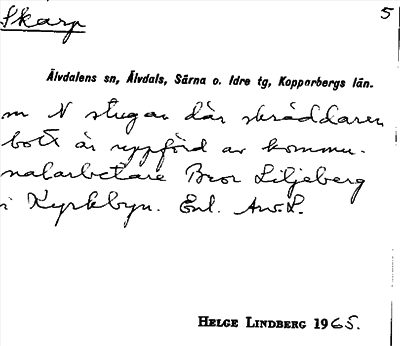 Skarp
5
Älvdalens sn, Älvdals, Särna o. Idre tg, Kopparbergs län.
m N stugan där skräddaren
bott är uppförd av kommu-
nalarbetare Bror Liljeberg
i Kyrkbyn. Enl. Aw. L.
HELGE LINDBERG 1965.